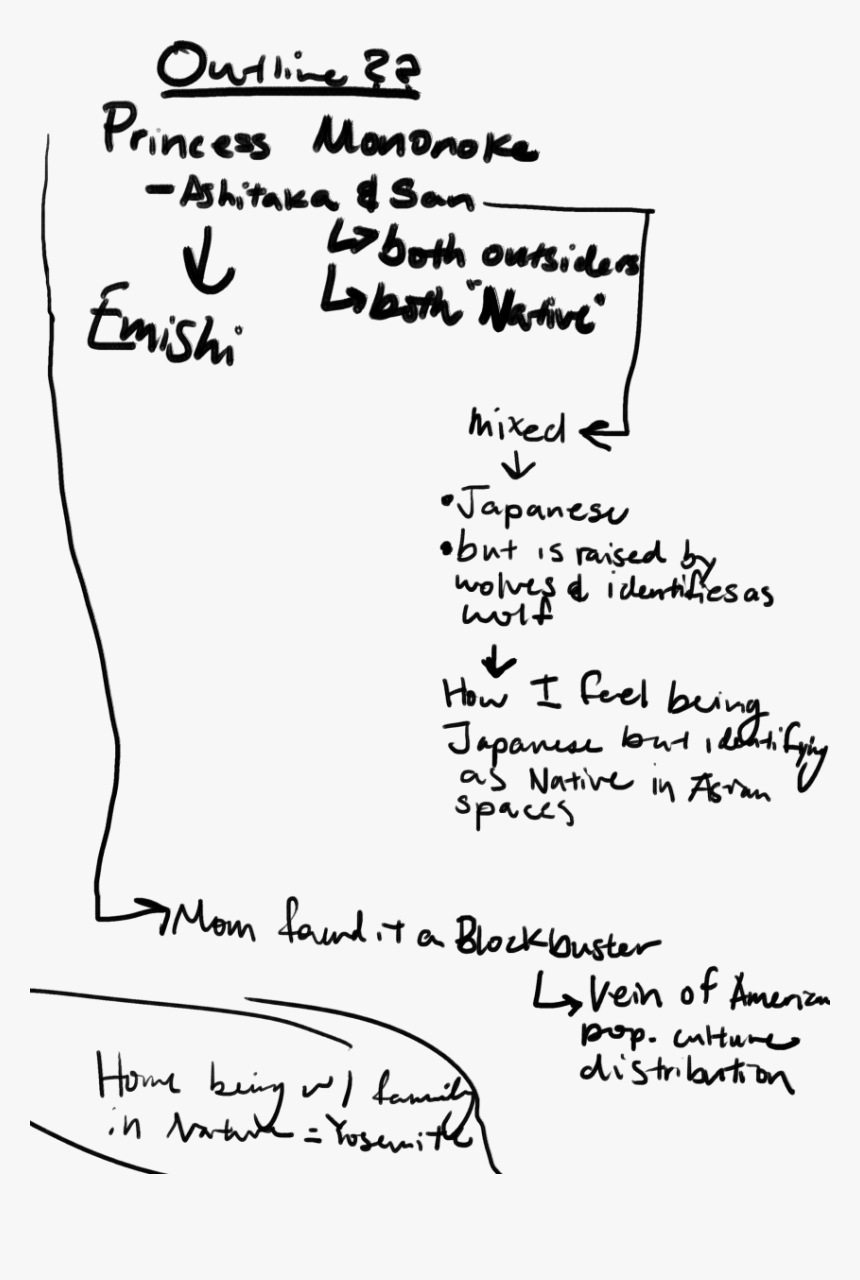 Outline ??
Princess Mononoke
- Ashitaka & San
↳ both outsiders
↳ both "Native"
Emishi
mixed
• Japanese
• but is raised by
wolves & identifies as
wolf
How I feel being
Japanese but identifying
as Native in Asian
spaces
Mom found it a Blockbuster
↳ Vein of American
pop. culture
distribution
Home being w/ family
in Nature = Yosemite